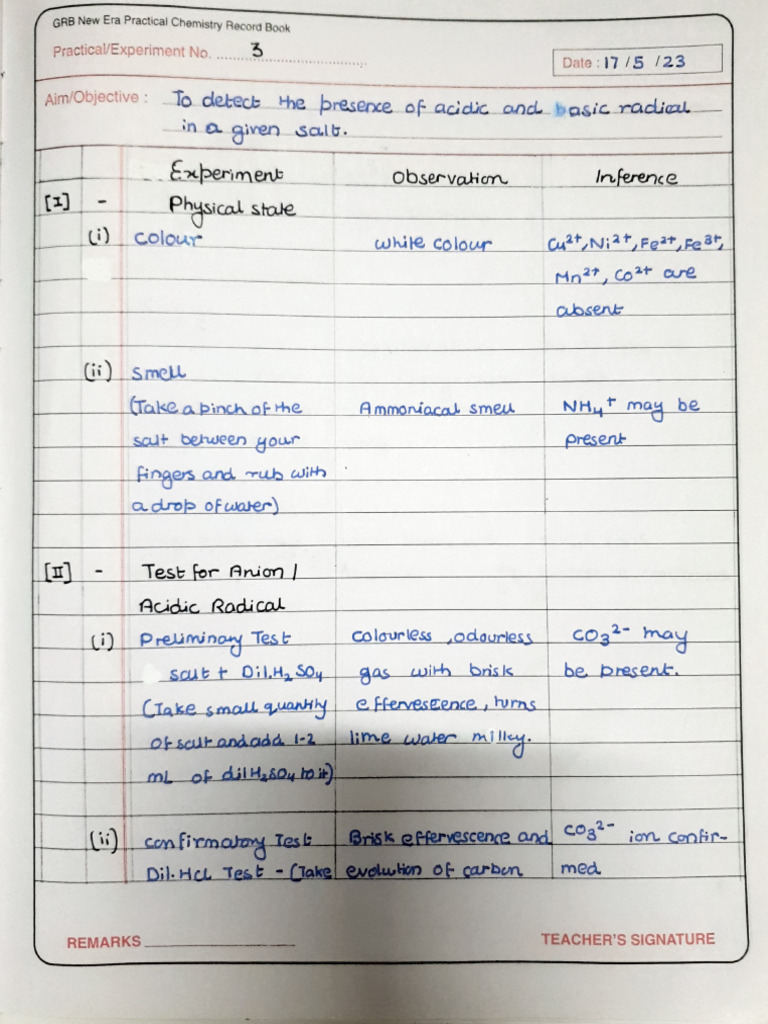 GRB New Era Practical Chemistry Record Book
Practical/Experiment No. 3
Date : 17 / 5 / 23
Aim/Objective : To detect the presence of acidic and basic radical
in a given salt.
Experiment Observation Inference
[I] - Physical state
(i) colour white colour Cu²⁺, Ni²⁺, Fe²⁺, Fe³⁺,
Mn²⁺, Co²⁺ are
absent
(ii) smell
(Take a pinch of the Ammoniacal smell NH₄⁺ may be
salt between your present
fingers and rub with
a drop of water)
[II] - Test for Anion /
Acidic Radical
(i) Preliminary Test colourless, odourless CO₃²⁻ may
salt + Dil. H₂SO₄ gas with brisk be present.
(Take small quantity effervescence, turns
of salt and add 1-2 lime water milky.
mL of dil H₂SO₄ to it)
(ii) confirmatory Test Brisk effervescence and CO₃²⁻ ion confir-
Dil. Hcl Test - (Take evolution of carbon med
REMARKS
TEACHER'S SIGNATURE